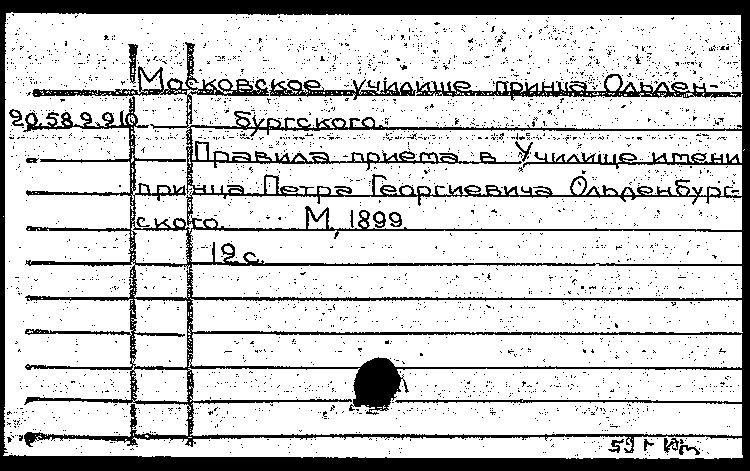 Московское училище принца Ольден-
20.58.9.910 бургского.
Правила приема в Училище имени
принца Петра Георгиевича Ольденбург-
ского. М, 1899.
12 с.
59 г